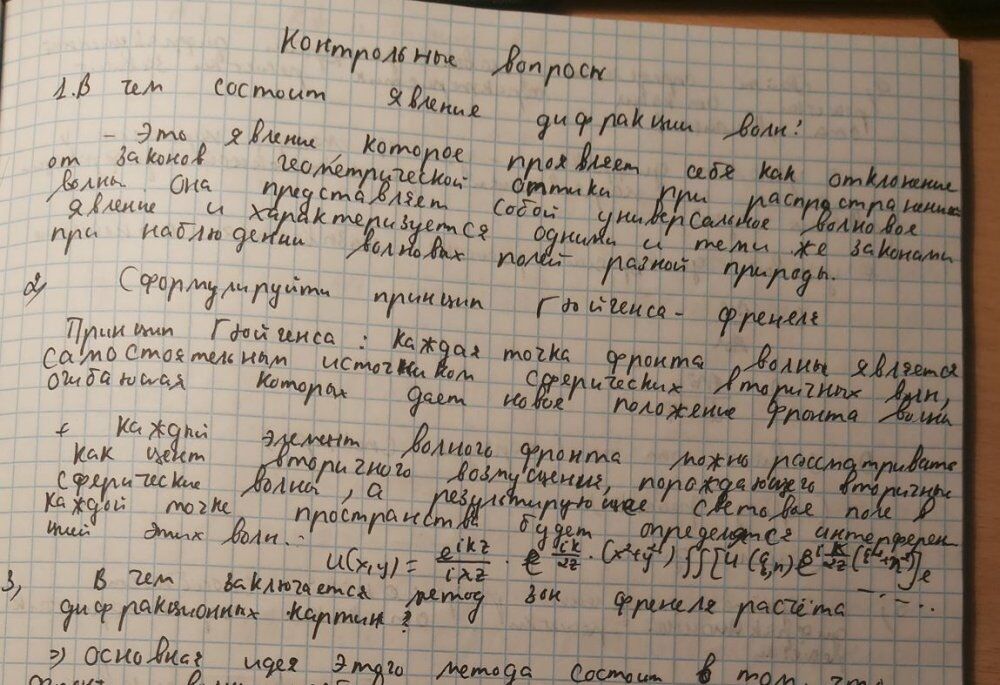 Контрольные вопросы
1. В чем состоит явление дифракции волн?
– Это явление которое проявляет себя как отклонение
от законов геометрической оптики при распространении
волны. Она представляет собой универсальное волновое
явление и характеризуется одними и теми же законами
при наблюдении волновых полей разной природы.
2) Сформулируйти принцип Гюйгенса - френеля
Принцип Гюйгенса : каждая точка фронта волны является
самостоятельным источником сферических вторичных волн,
огибающая которых дает новое положение фронта волны
+ каждый элемент волного фронта можно рассматривать
как цент вторичного возмущения, пораждающего вторичные
сферические волны, а результирующее световое поле в
каждой точке пространства будет определятся интерферен
цией этих волн.
U(x,y) = e^{ikz}/iλz · e^{ik/2z · (x²+y²)} ∫∫ [U(ξ,η) e^{i k/2z (ξ²+η²)}] e
3, В чем заключается метод зон френеля расчёта
дифракционных картин?
=> основная идея этого метода состоит в том, что